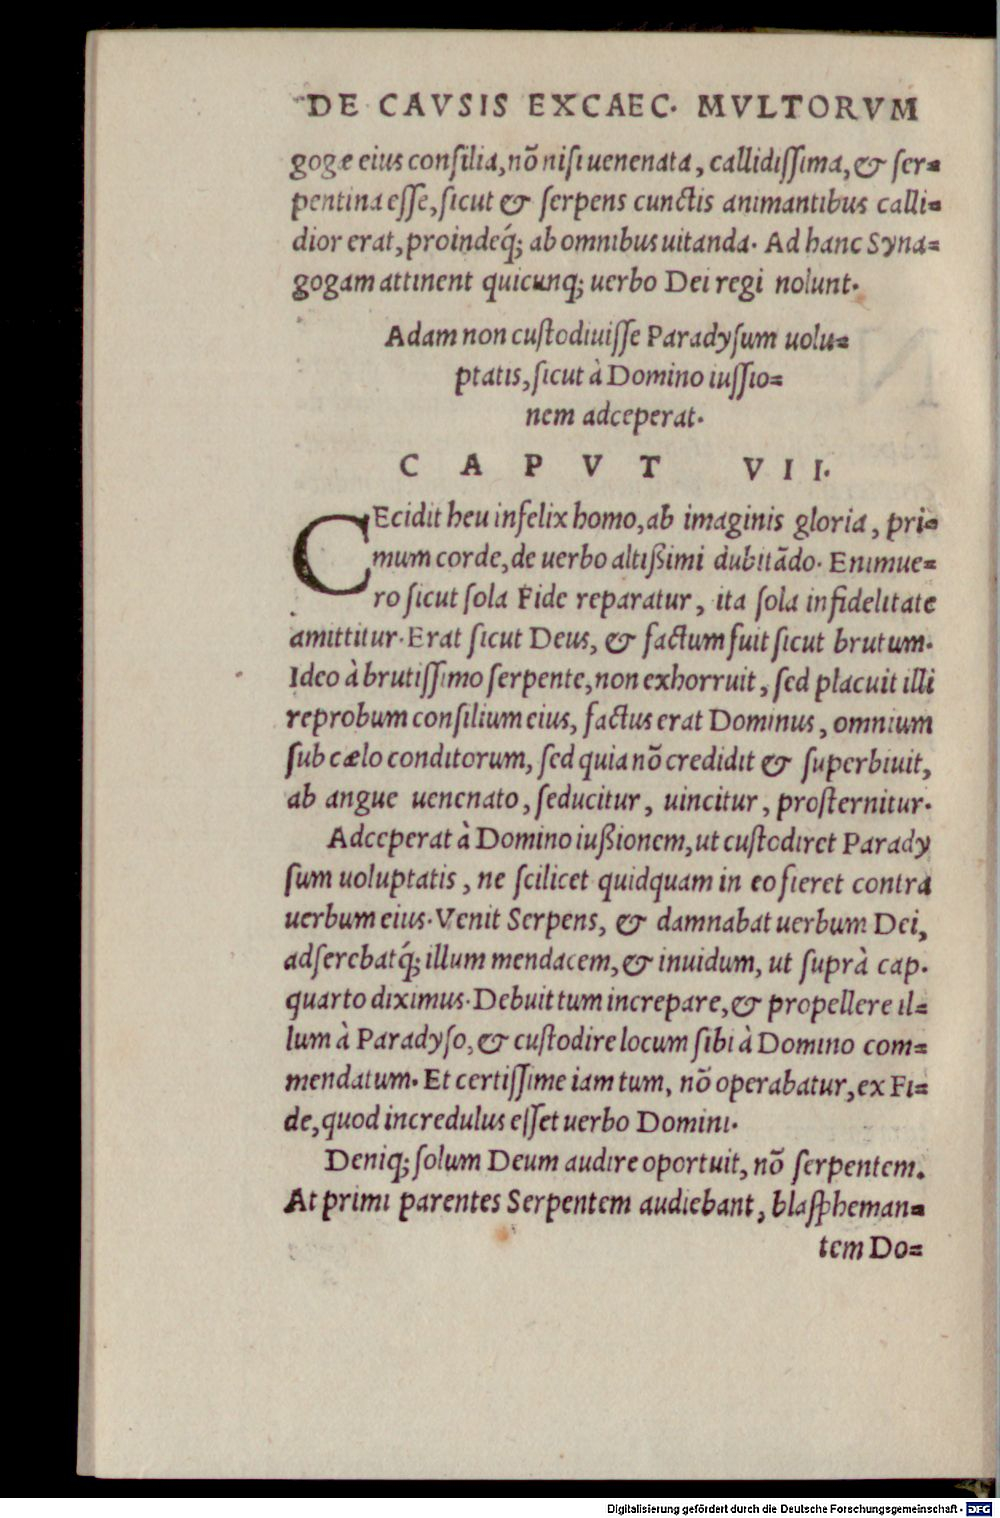 DE CAVSIS EXCAEC. MVLTORVM
gogæ eius consilia, nõ nisi uenenata, callidissima, & ser=
pentina esse, sicut & serpens cunctis animantibus calli=
dior erat, proindeq́; ab omnibus uitanda. Ad hanc Syna=
gogam attinent quicunq; uerbo Dei regi nolunt.
Adam non custodiuisse Paradysum uolu=
ptatis, sicut à Domino iussio=
nem adceperat.
CAPVT VII.
CEcidit heu infelix homo, ab imaginis gloria, pri=
mum corde, de uerbo altißimi dubitãdo. Enimue=
ro sicut sola Fide reparatur, ita sola infidelitate
amittitur. Erat sicut Deus, & factum fuit sicut brutum.
Ideo à brutissimo serpente, non exhorruit, sed placuit illi
reprobum consilium eius, factus erat Dominus, omnium
sub cælo conditorum, sed quia nõ credidit & superbiuit,
ab angue uenenato, seducitur, uincitur, prosternitur.
Adceperat à Domino iußionem, ut custodiret Parady
sum uoluptatis, ne scilicet quidquam in eo fieret contra
uerbum eius. Venit Serpens, & damnabat uerbum Dei,
adserebatq́; illum mendacem, & inuidum, ut suprà cap.
quarto diximus. Debuit tum increpare, & propellere il=
lum à Paradyso, & custodire locum sibi à Domino com=
mendatum. Et certissime iam tum, nõ operabatur, ex Fi=
de, quod incredulus esset uerbo Domini.
Deniq; solum Deum audire oportuit, nõ serpentem.
At primi parentes Serpentem audiebant, blaspheman=
tem Do=
Digitalisierung gefördert durch die Deutsche Forschungsgemeinschaft - DFG